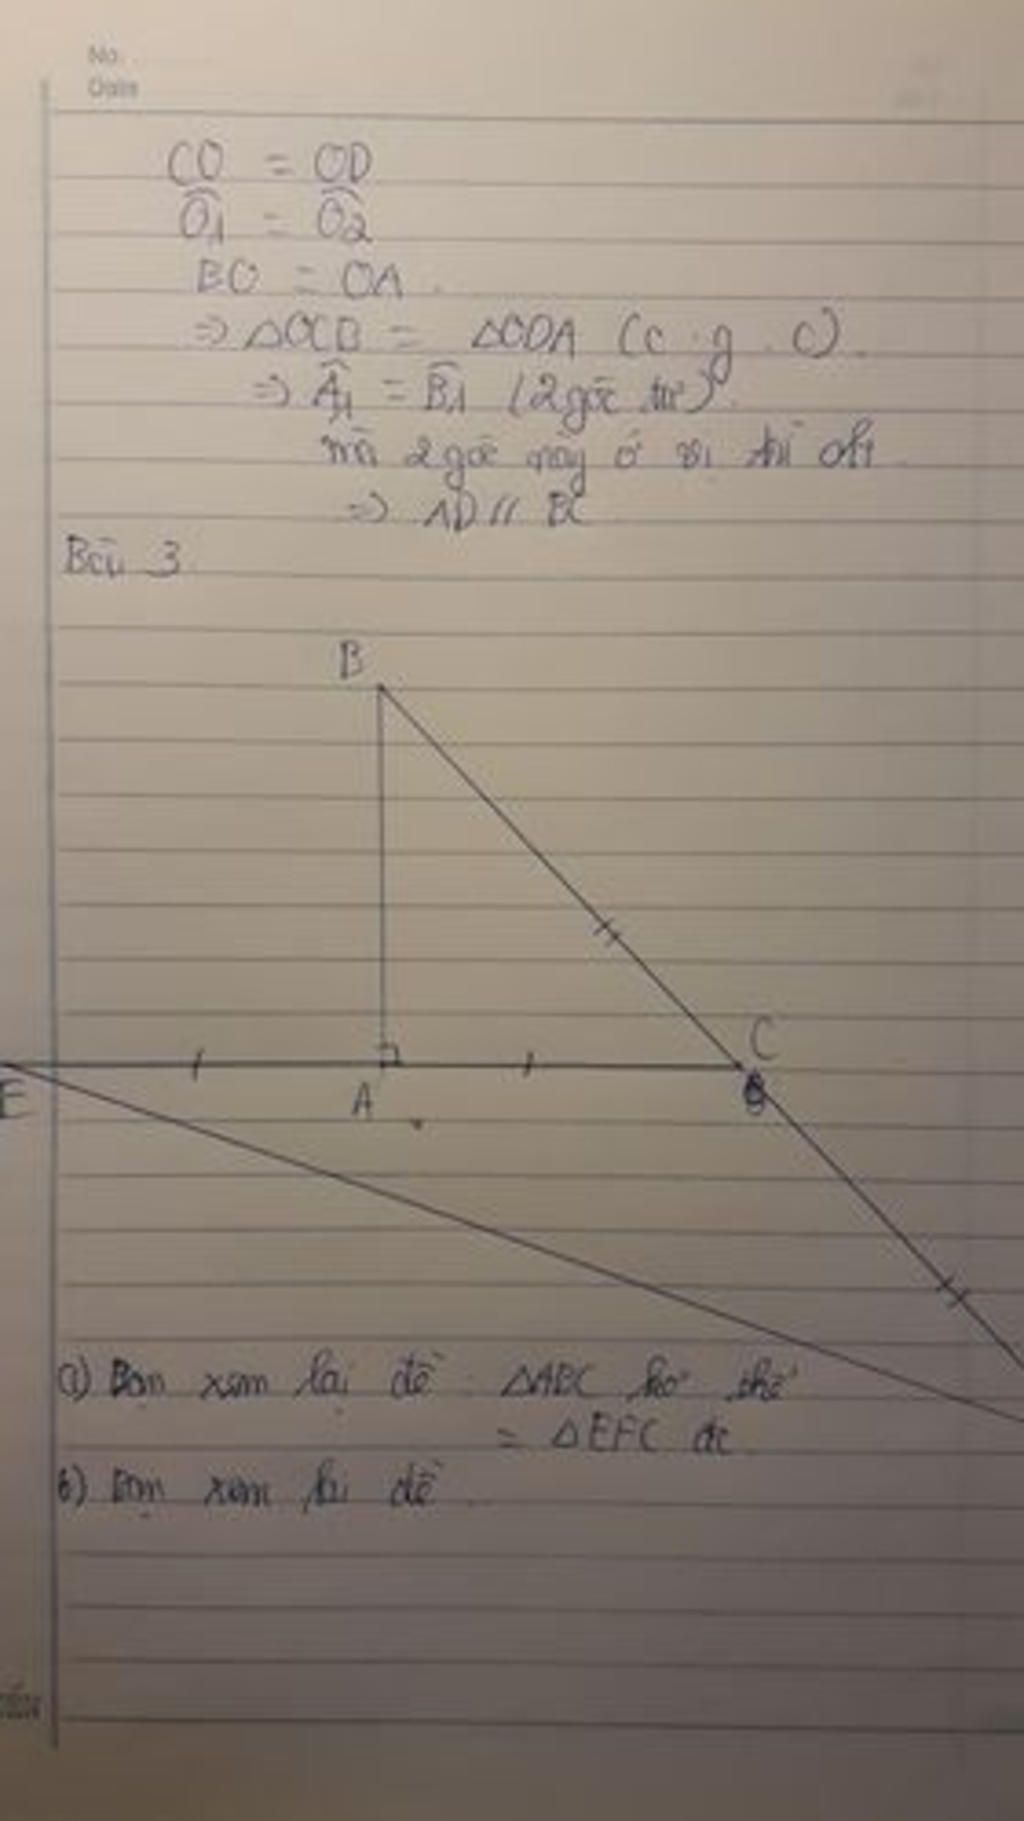 No.
Date
CO = OD
Ô1 = Ô2
BO = OA.
=> ΔOCB = ΔODA (c.g.c).
=> Â1 = B̂1 (2 góc tư).
mà 2 góc này ở vị thí slt
=> AD // BC
Bài 3.
B
C
E
A
a) Bạn xem lại đề ΔABC ko thể
= ΔEFC đc
b) Bạn xem lại đề.